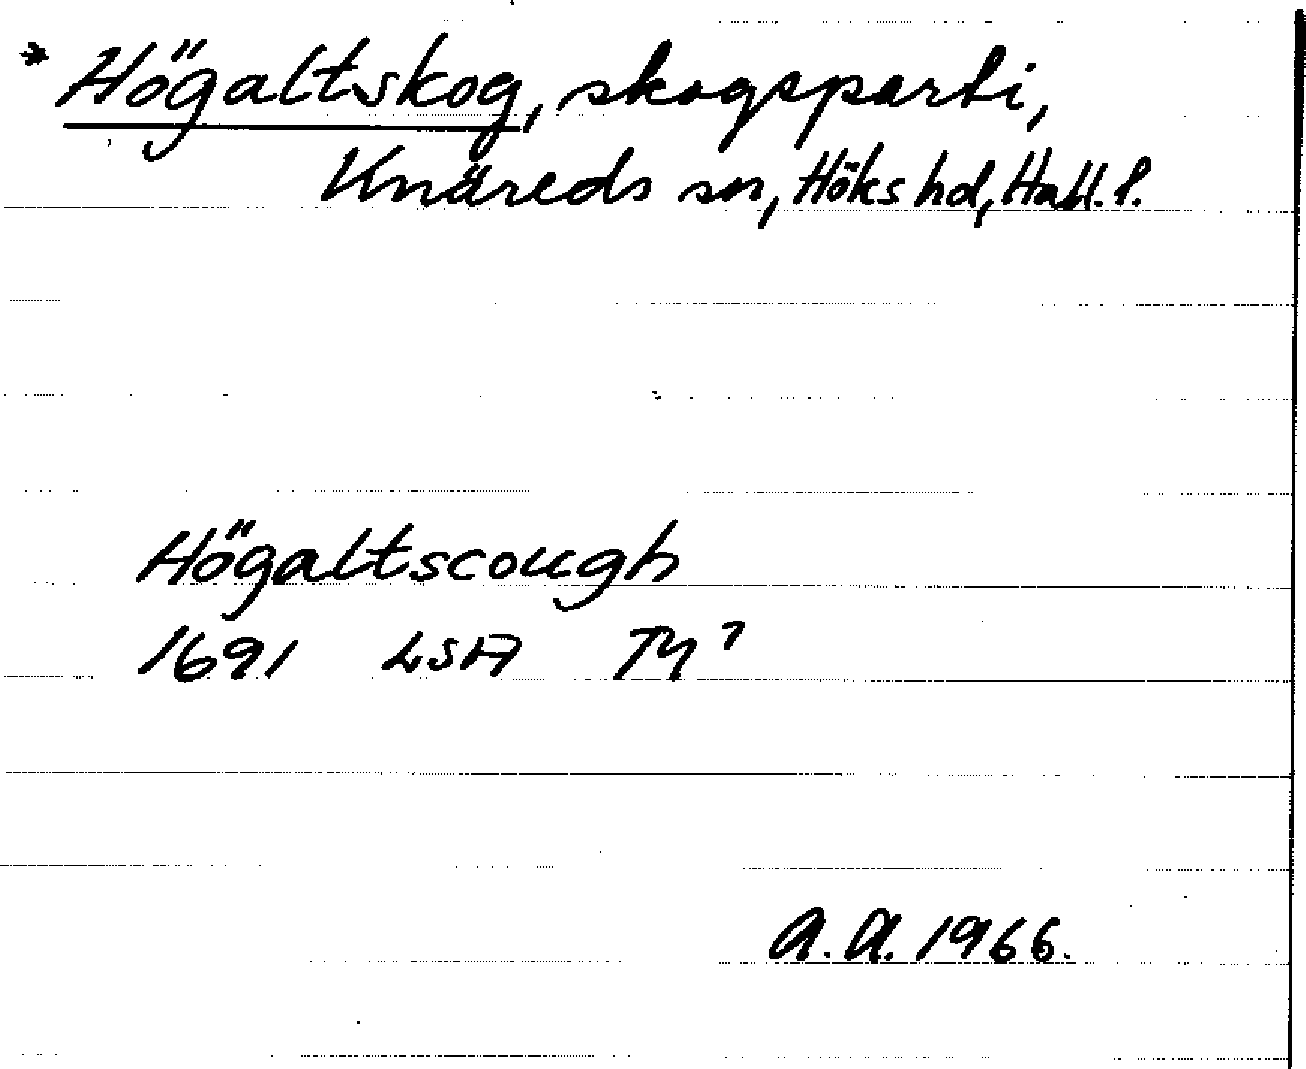 * Högaltskog, skogsparti,
Knäreds sn, Höks hd, Hall. l.
Högaltscough
1691 LSA Ty 7
A.A. 1966.